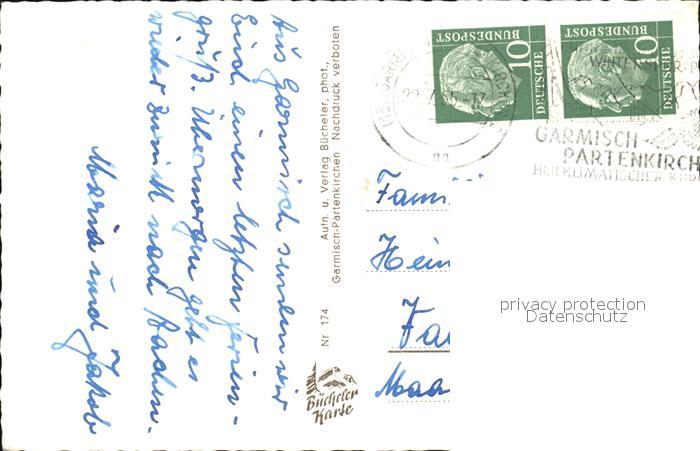 Aus Garmisch senden wir
Euch einen letzten Ferien-
gruß. Übermorgen geht es
wieder zurück nach Aachen.
Maria und Jakob
Aufn. u. Verlag Bücheler, phot.,
Garmisch-Partenkirchen Nachdruck verboten
Nr 174
Bücheler
Karte
DEUTSCHE
BUNDESPOST
10
DEUTSCHE
BUNDESPOST
10
GARMISCH-
PARTENKIRCH
HEILKLIMATISCHER
Fam
Hein
Fa
Maa
privacy protection
Datenschutz